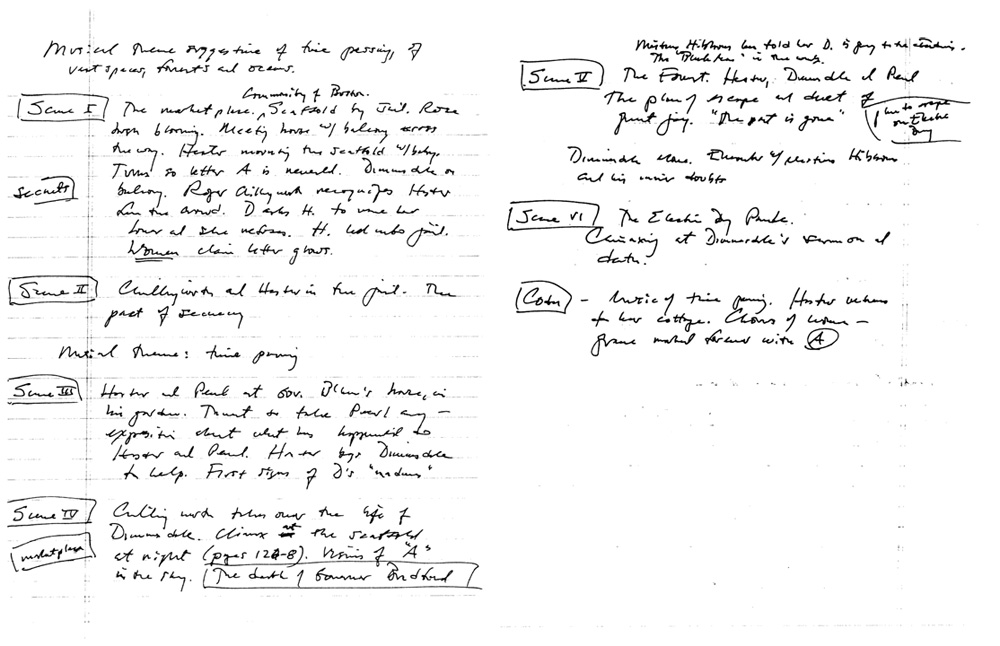 Musical theme suggestive of time passing, of
vast spaces, forests and oceans.
Community of Boston.
Scene I The market place. Scaffold by Jail. Rose
bush blooming. Meeting house w/ balcony across
the way. Hester mounting the scaffold w/ baby.
Turns so letter A is revealed. Dimmesdale on
secrets balcony. Roger Chillingworth recognizes Hester
in the crowd. D asks H. to name her
lover and she refuses. H. led into jail.
Women claim letter glows.
Scene II Chillingworth and Hester in the jail. The
pact of secrecy
Musical theme: time passing
Scene III Hester and Pearl at Gov. house, in
his garden. Threat to take Pearl away –
exposition about what has happened to
Hester and Pearl. Hester begs Dimmesdale
to help. First signs of D's "madness"
Scene IV Chillingworth takes over the life of
Dimmesdale. Climax at the scaffold
marketplace at night (pages 124-8). Visions of "A"
in the sky. The death of Governor Bradford
Mistress Hibbins has told her D. is going to be attending.
The "Black Man" in the woods.
Scene V The Forest. Hester, Dimmesdale and Pearl
The plan of escape and duet of
great joy. "The past is gone"
plan to escape
on Election
Day
Dimmesdale alone. Encounter w/ Mistress Hibbins
and his inner doubts
Scene VI The Election Day Parade.
Climaxing at Dimmesdale's sermon and
death.
Coda – Music of time passing. Hester returns
to her cottage. Chorus of women –
grave marked forever with A